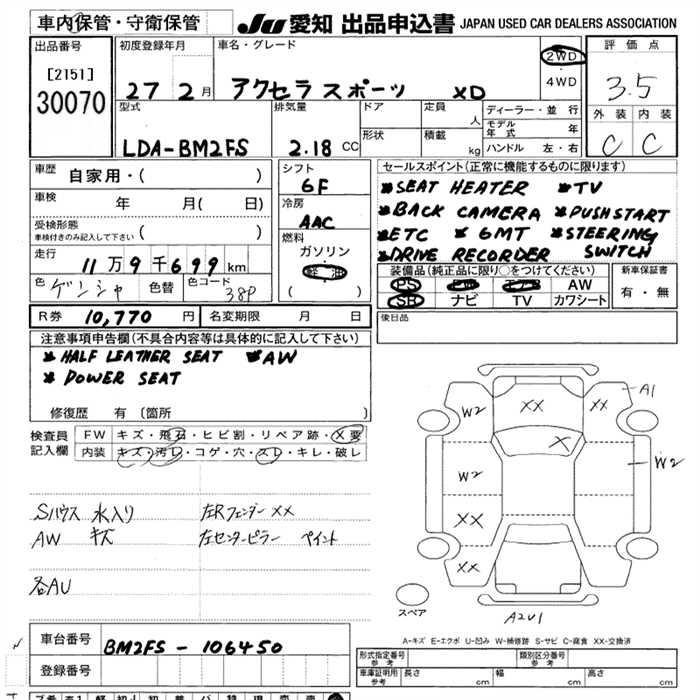 車内保管・守衛保管 JU 愛知 出品申込書 JAPAN USED CAR DEALERS ASSOCIATION
出品番号 初度登録年月 車名・グレード 2WD 評価点
[2151] 27 2月 アクセラスポーツ XD 4WD 3.5
30070
型式 排気量 ドア 定員 人 ディーラー・並行 外装 内装
モデル年式
LDA-BM2FS 2.18 CC 形状 積載 kg ハンドル 左・右 C C
車歴 自家用・( ) シフト 6F セールスポイント(正常に機能するものに限ります)
車検 年 月( 日) 冷房 AAC *SEAT HEATER *TV
受検形態 *BACK CAMERA *PUSHSTART
車検付きのみ記入して下さい ( ) 燃料 *ETC *6MT *STEERING SWITCH
走行 11万9千699km ガソリン *DRIVE RECORDER
軽油 装備品(純正品に限り○をつけてください) 新車保証書
色 ゲンシャ 色替 色コード 38P ( ) PS AW 有・無
SR ナビ TV カワシート
R券 10,770円 名変期限 月 日 後日品
注意事項申告欄(不具合内容等は具体的に記入して下さい)
*HALF LEATHER SEAT *AW
*POWER SEAT
修復歴 有 〔箇所 〕
検査員 FW キズ・飛石・ヒビ割・リペア跡・X要
記入欄 内装 キズ・汚レ・コゲ・穴・スレ・キレ・破レ
Sハウス 水入り 左Rフェンダー XX
AW キズ 左センターピラー ペイント
各AU
A1
W2 XX XX
X
W2 W2
XX
XX
スペア
A2U1
A-キズ E-エクボ U-凹み W-補修跡 S-サビ C-腐食 XX-交換済
車台番号 BM2FS-106450
登録番号
形式指定番号 参考 類別区分番号 参考
車庫証明用 参考 長さ cm 幅 cm 高さ cm